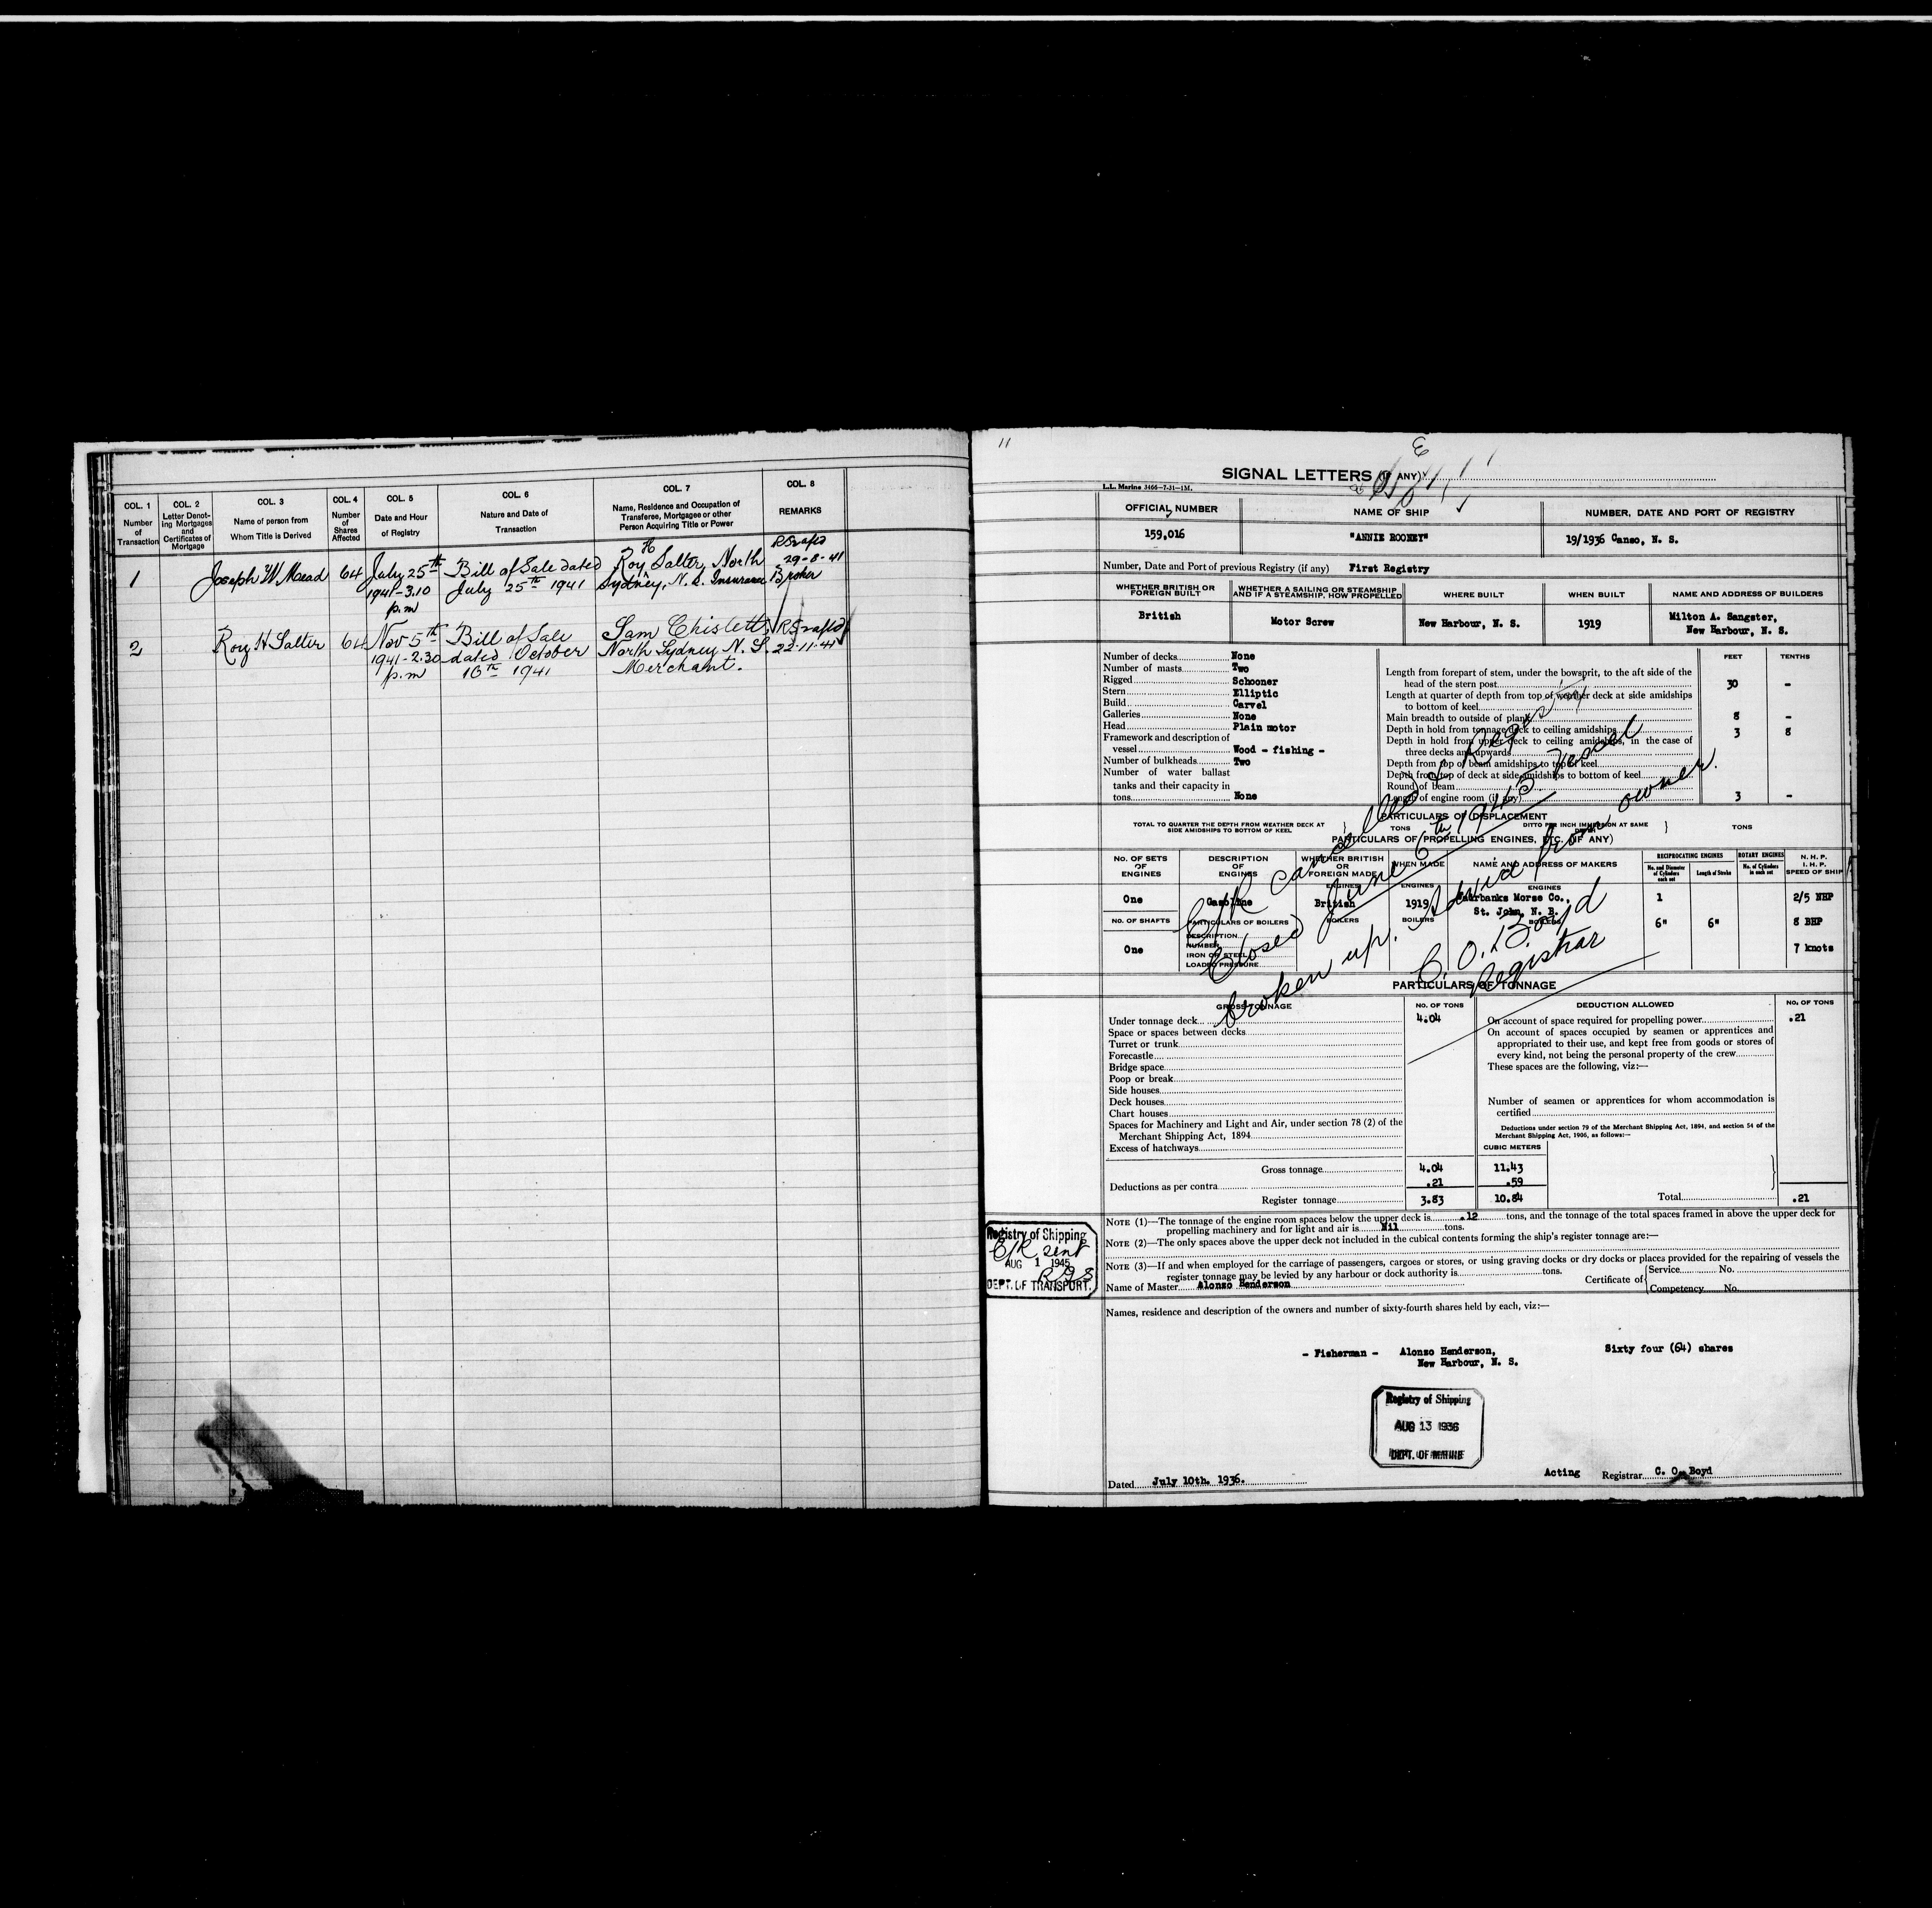 COL. 1
Number
of
Transaction
COL. 2
Letter Denot-
ing Mortgages
and
Certificates of
Mortgage
COL. 3
Name of person from
Whom Title is Derived
COL. 4
Number
of
Shares
Affected
COL. 5
Date and Hour
of Registry
COL. 6
Nature and Date of
Transaction
COL. 7
Name, Residence and Occupation of
Transferee, Mortgagee or other
Person Acquiring Title or Power
COL. 8
REMARKS
1
Joseph W. Mead
64
July 25th
1941-3.10
p.m
Bill of Sale dated
July 25th 1941
H
Roy Salter, North
Sydney, N.S. Insurance Broker
29-8-41
2
Roy H Salter
64
Nov 5th
1941-2.30
p.m
Bill of Sale
dated October
16th 1941
Sam Chislett
North Sydney N.S.
Merchant.
22-11-41
11
SIGNAL LETTERS (IF ANY)
L.L. Marine 3466-7-31-1M.
OFFICIAL NUMBER
NAME OF SHIP
NUMBER, DATE AND PORT OF REGISTRY
159,016
"ANNIE ROONEY"
19/1936 Canso, N. S.
Number, Date and Port of previous Registry (if any) First Registry
WHETHER BRITISH OR
FOREIGN BUILT
WHETHER A SAILING OR STEAMSHIP
AND IF A STEAMSHIP, HOW PROPELLED
WHERE BUILT
WHEN BUILT
NAME AND ADDRESS OF BUILDERS
British
Motor Screw
New Harbour, N. S.
1919
Milton A. Sangster,
New Harbour, N. S.
Number of decks None
Number of masts Two
Rigged Schooner
Stern Elliptic
Build Carvel
Galleries None
Head Plain motor
Framework and description of
vessel Wood - fishing -
Number of bulkheads Two
Number of water ballast
tanks and their capacity in
tons None
FEET TENTHS
Length from forepart of stem, under the bowsprit, to the aft side of the
head of the stern post 30 -
Length at quarter of depth from top of weather deck at side amidships
to bottom of keel
Main breadth to outside of plank 8 -
Depth in hold from tonnage deck to ceiling amidships 3 8
Depth in hold from upper deck to ceiling amidships, in the case of
three decks and upwards
Depth from top of beam amidships to top of keel
Depth from top of deck at side amidships to bottom of keel
Round of beam
Length of engine room (if any) 3 -
C/R cancelled & Registry
Closed June 6th 1945 Vessel
broken up. Advice from owner.
C. O. Boyd
Registrar
PARTICULARS OF DISPLACEMENT
TOTAL TO QUARTER THE DEPTH FROM WEATHER DECK AT
SIDE AMIDSHIPS TO BOTTOM OF KEEL
TONS
DITTO PER INCH IMMERSION AT SAME
DEPTH
TONS
PARTICULARS OF PROPELLING ENGINES, ETC. (IF ANY)
NO. OF SETS
OF
ENGINES
DESCRIPTION
OF
ENGINES
WHETHER BRITISH
OR
FOREIGN MADE
WHEN MADE
NAME AND ADDRESS OF MAKERS
RECIPROCATING ENGINES
No. and Diameter
of Cylinders
each set
Length of Stroke
ROTARY ENGINES
No. of Cylinders
in each set
N. H. P.
I. H. P.
SPEED OF SHIP
ENGINES
ENGINES
ENGINES
One
Gasoline
British
1919
Fairbanks Morse Co.,
St. John, N. B.
1
2/5 NHP
NO. OF SHAFTS
PARTICULARS OF BOILERS
BOILERS
BOILERS
BOILERS
6"
6"
8 BHP
One
DESCRIPTION
NUMBER
IRON OR STEEL
LOADED PRESSURE
7 knots
PARTICULARS OF TONNAGE
GROSS TONNAGE
NO. OF TONS
DEDUCTION ALLOWED
NO. OF TONS
Under tonnage deck 4.04
Space or spaces between decks
Turret or trunk
Forecastle
Bridge space
Poop or break
Side houses
Deck houses
Chart houses
Spaces for Machinery and Light and Air, under section 78 (2) of the
Merchant Shipping Act, 1894
Excess of hatchways
On account of space required for propelling power .21
On account of spaces occupied by seamen or apprentices and
appropriated to their use, and kept free from goods or stores of
every kind, not being the personal property of the crew
These spaces are the following, viz:—
Number of seamen or apprentices for whom accommodation is
certified
Deductions under section 79 of the Merchant Shipping Act, 1894, and section 54 of the
Merchant Shipping Act, 1906, as follows:—
CUBIC METERS
Gross tonnage 4.04 11.43
Deductions as per contra .21 .59
Register tonnage 3.83 10.84
Total .21
NOTE (1)—The tonnage of the engine room spaces below the upper deck is .12 tons, and the tonnage of the total spaces framed in above the upper deck for
propelling machinery and for light and air is Nil tons.
NOTE (2)—The only spaces above the upper deck not included in the cubical contents forming the ship's register tonnage are:—
NOTE (3)—If and when employed for the carriage of passengers, cargoes or stores, or using graving docks or dry docks or places provided for the repairing of vessels the
register tonnage may be levied by any harbour or dock authority is tons.
Name of Master Alonzo Henderson
Certificate of
Service No.
Competency No.
Registry of Shipping
C/R sent
AUG 1 1945
DEPT. OF TRANSPORT.
Names, residence and description of the owners and number of sixty-fourth shares held by each, viz:—
- Fisherman - Alonzo Henderson, Sixty four (64) shares
New Harbour, N. S.
Registry of Shipping
AUG 13 1936
DEPT. OF MARINE
Dated July 10th. 1936.
Acting Registrar C. O. Boyd